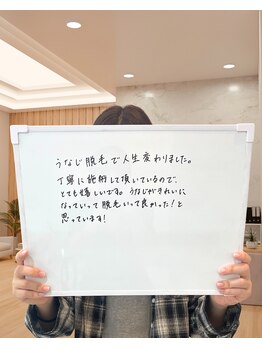 うなじ脱毛で人生変わりました。
丁寧に施術して頂いているので、
とても嬉しいです。うなじがきれいに
なっていって脱毛いって良かった！と
思っています！